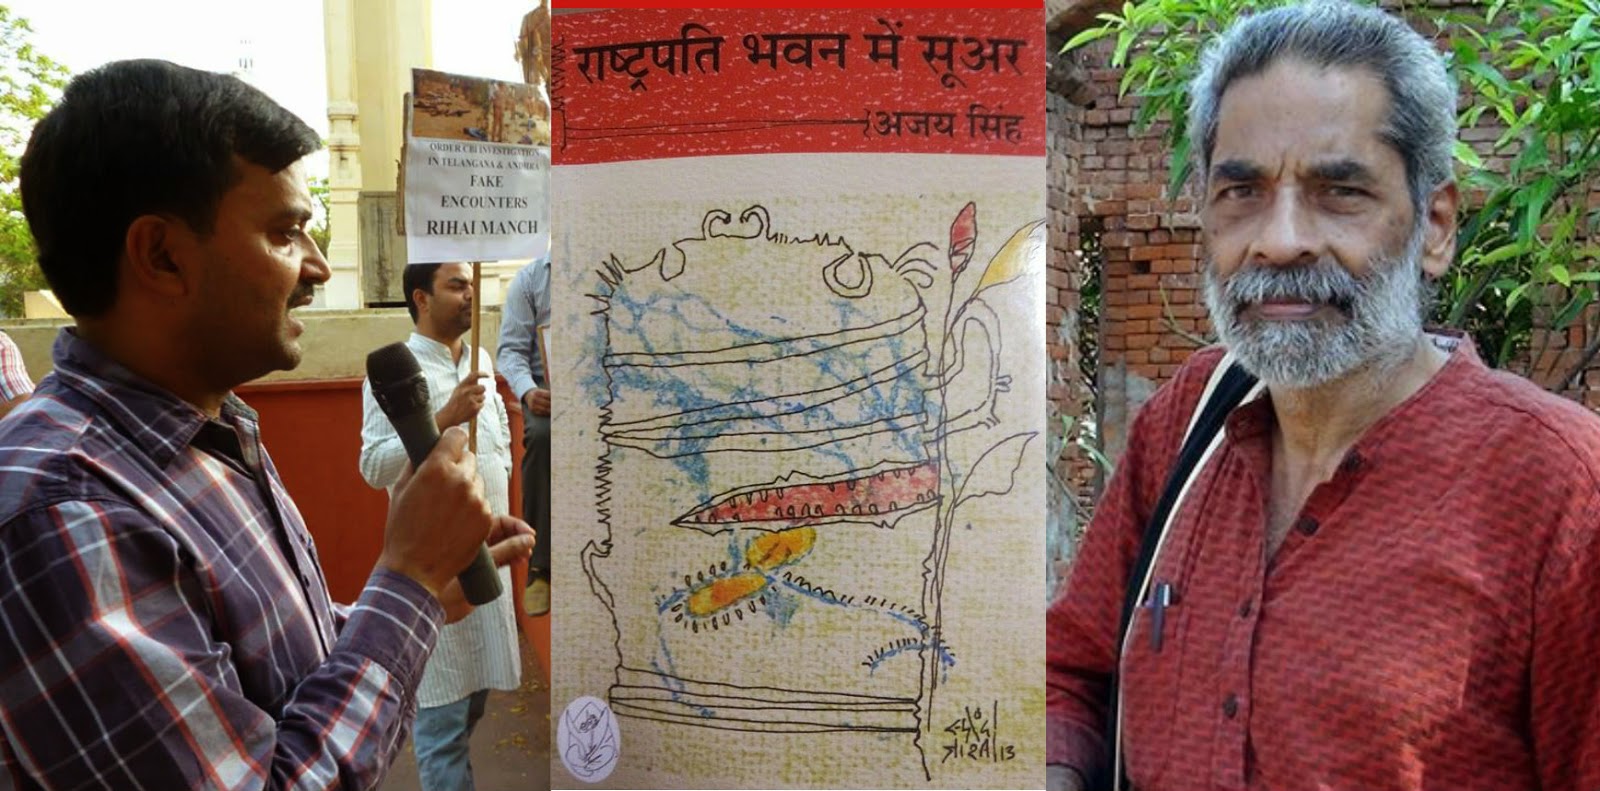 ORDER CBI INVESTIGATION
IN TELANGANA & ANDHRA
FAKE
ENCOUNTERS
RIHAI MANCH
राष्ट्रपति भवन में सूअर
अजय सिंह